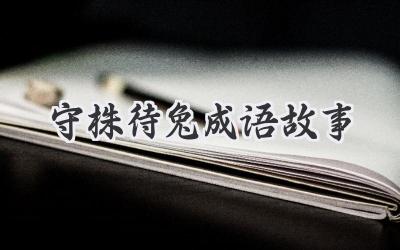 守株待兔成语故事